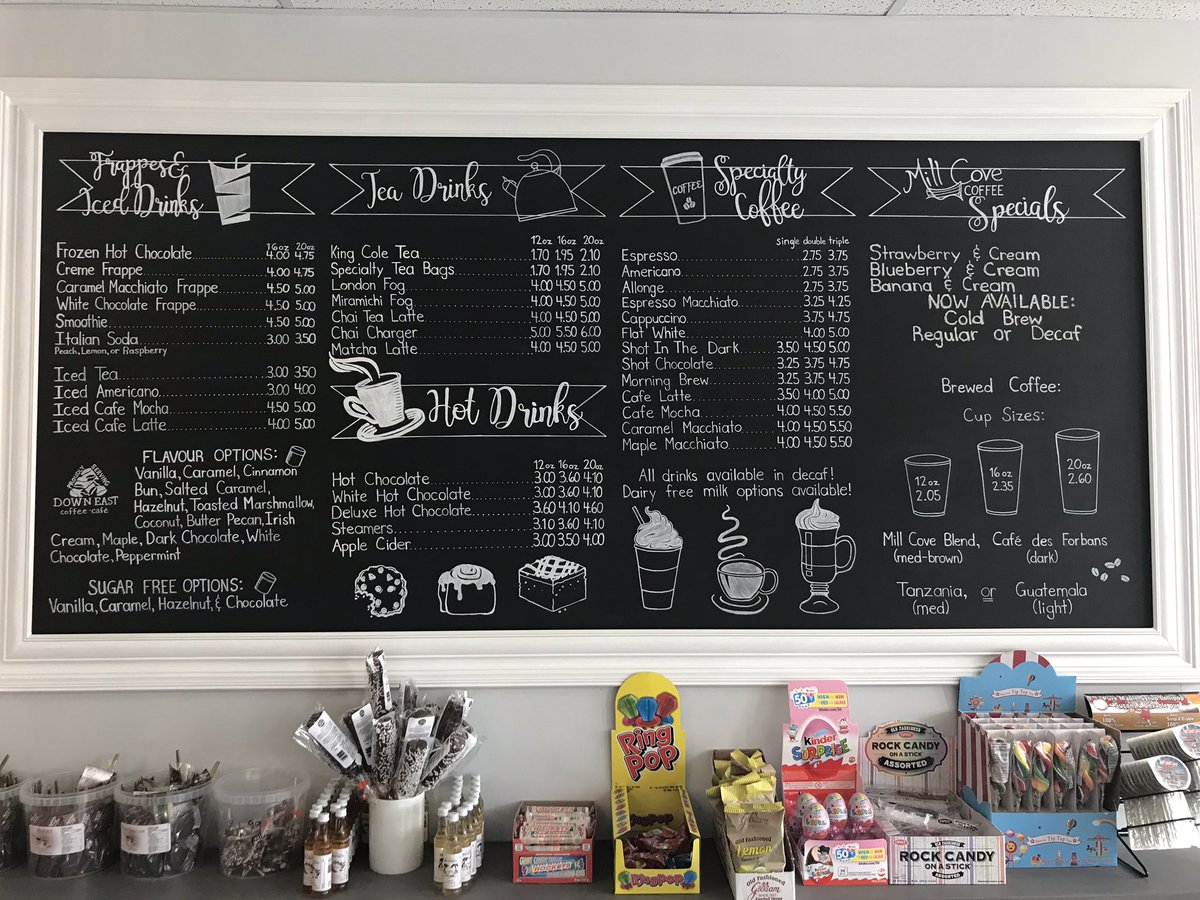 Frappes &
Iced Drinks
16oz 20oz
Frozen Hot Chocolate 4.00 4.75
Creme Frappe 4.00 4.75
Caramel Macchiato Frappe 4.50 5.00
White Chocolate Frappe 4.50 5.00
Smoothie 4.50 5.00
Italian Soda 3.00 3.50
Peach, Lemon, or Raspberry
Iced Tea 3.00 3.50
Iced Americano 3.00 4.00
Iced Cafe Mocha 4.50 5.00
Iced Cafe Latte 4.00 5.00
FLAVOUR OPTIONS:
Vanilla, Caramel, Cinnamon
Bun, Salted Caramel,
Hazelnut, Toasted Marshmallow,
Coconut, Butter Pecan, Irish
Cream, Maple, Dark Chocolate, White
Chocolate, Peppermint
PROUDLY SERVING
DOWN EAST
coffee·café
SUGAR FREE OPTIONS:
Vanilla, Caramel, Hazelnut, & Chocolate
Tea Drinks
12oz 16oz 20oz
King Cole Tea 1.70 1.95 2.10
Specialty Tea Bags 1.70 1.95 2.10
London Fog 4.00 4.50 5.00
Miramichi Fog 4.00 4.50 5.00
Chai Tea Latte 4.00 4.50 5.00
Chai Charger 5.00 5.50 6.00
Matcha Latte 4.00 4.50 5.00
Hot Drinks
12oz 16oz 20oz
Hot Chocolate 3.00 3.60 4.10
White Hot Chocolate 3.00 3.60 4.10
Deluxe Hot Chocolate 3.60 4.10 4.60
Steamers 3.10 3.60 4.10
Apple Cider 3.00 3.50 4.00
COFFEE
Specialty
Coffee
single double triple
Espresso 2.75 3.75
Americano 2.75 3.75
Allonge 2.75 3.75
Espresso Macchiato 3.25 4.25
Cappuccino 3.75 4.75
Flat White 4.00 5.00
Shot In The Dark 3.50 4.50 5.00
Shot Chocolate 3.25 3.75 4.75
Morning Brew 3.25 3.75 4.75
Cafe Latte 3.50 4.00 5.00
Cafe Mocha 4.00 4.50 5.50
Caramel Macchiato 4.00 4.50 5.50
Maple Macchiato 4.00 4.50 5.50
All drinks available in decaf!
Dairy free milk options available!
Mill Cove
COFFEE
Specials
Strawberry & Cream
Blueberry & Cream
Banana & Cream
NOW AVAILABLE:
Cold Brew
Regular or Decaf
Brewed Coffee:
Cup Sizes:
12oz
2.05
16oz
2.35
20oz
2.60
Mill Cove Blend, Café des Forbans
(med-brown) (dark)
Tanzania, or Guatemala
(med) (light)
Ring
POP
RING POP
Old Fashioned
Lemon
Gilliam
Kinder
SURPRISE
50%
ROCK CANDY
ON A STICK
ASSORTED
ROCK CANDY
ON A STICK